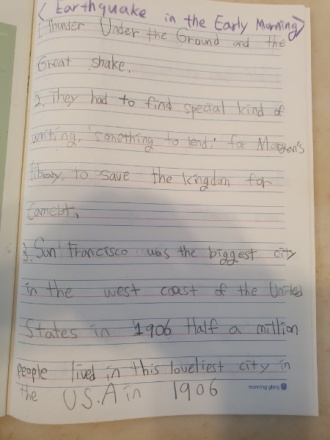 < Earthquake in the Early Morning>
1. Thunder Under the Ground and the
Great shake.
2. They had to find special kind of
writing, 'something to lend,' for Morgan's
library, to save the kingdom for
Camelot.
3. San Francisco was the biggest city
in the west coast of the United
States in 1906 Half a million
people lived in this loveliest city in
the U.S.A in 1906
morning glory